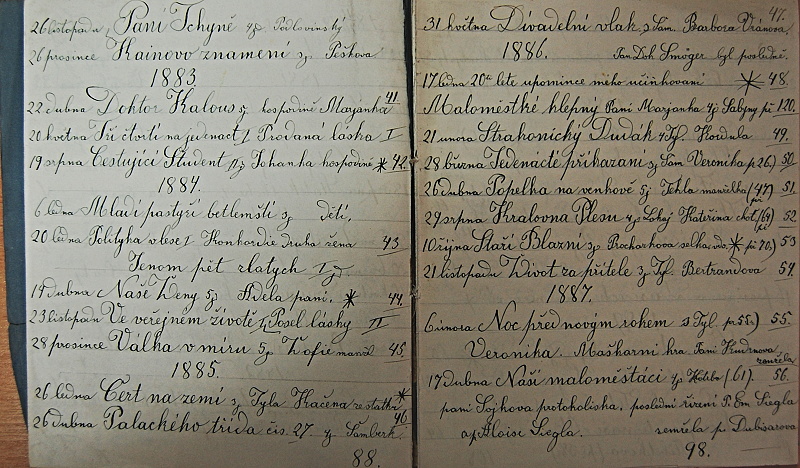 26 listopadu Paní Tchyně 4j Podlovinský
26 prosince Kainovo znamení 3j Peškova
1883.
22 dubna Doktor Kalous 5j hospodině Marjánka 41
20 května Tři čtvrti na jedenact 1 Prodaná láska I
19 srpna Cestující Student Johanka hospodině * 42
1884.
6 ledna Mladí pastýři betlemští 3j Dětí,
20 ledna Polityka v lese 1 Konkordie druhá žena 43
Jenom pět zlatych 1j
19 dubna Naše Ženy 5j Adela paní. * 44
23 listopadu Ve veřejném životě Posel lásky II
28 prosince Válka v míru 5j Žofie manžel 45.
1885.
26 ledna Čert na zemi 3j Tyla Kačena ze statku *
26 dubna Palackého třída čís. 27. 4j Šamberk. 46
88.
47.
31 května Divadelní vlak, 3 Šam. Barbora Vránova
1886. Pan Doh Smöger byl posledně.
17 ledna 20te leté upomince mého učinkovaní * 48.
Maloměstké klepny Paní Marjanka 4j Sabiny při 120.
21 unora Strakonický Dudák 4 Tyl. Kordula 49.
28 března Jedenácté přikázaní 3j Šam Veronika p 26) 50
26 dubna Popelka na venkově 5j Tekla manželka (47) při 51
29 srpna Kralovna Plesu 4j Lokaj Kateřina chot (69) při 52
10 října Staří Blazni 3j Prochazkova selka vdo. * při 70) 53
21 listopadu Život za přítele 3j Tyl. Bertrandova 54
1887.
6 unora Noc před novým rokem 3 Tyl při 55) 55.
Veronika. Maškarní hra Paní Hudrnova zemřela
17 dubna Naší maloměštáci 4j (61). 56.
paní Sojková protokolistka, poslední řízení P. Em Siegla
a p Aloise Siegla. zemřela p Dubisarova
98.